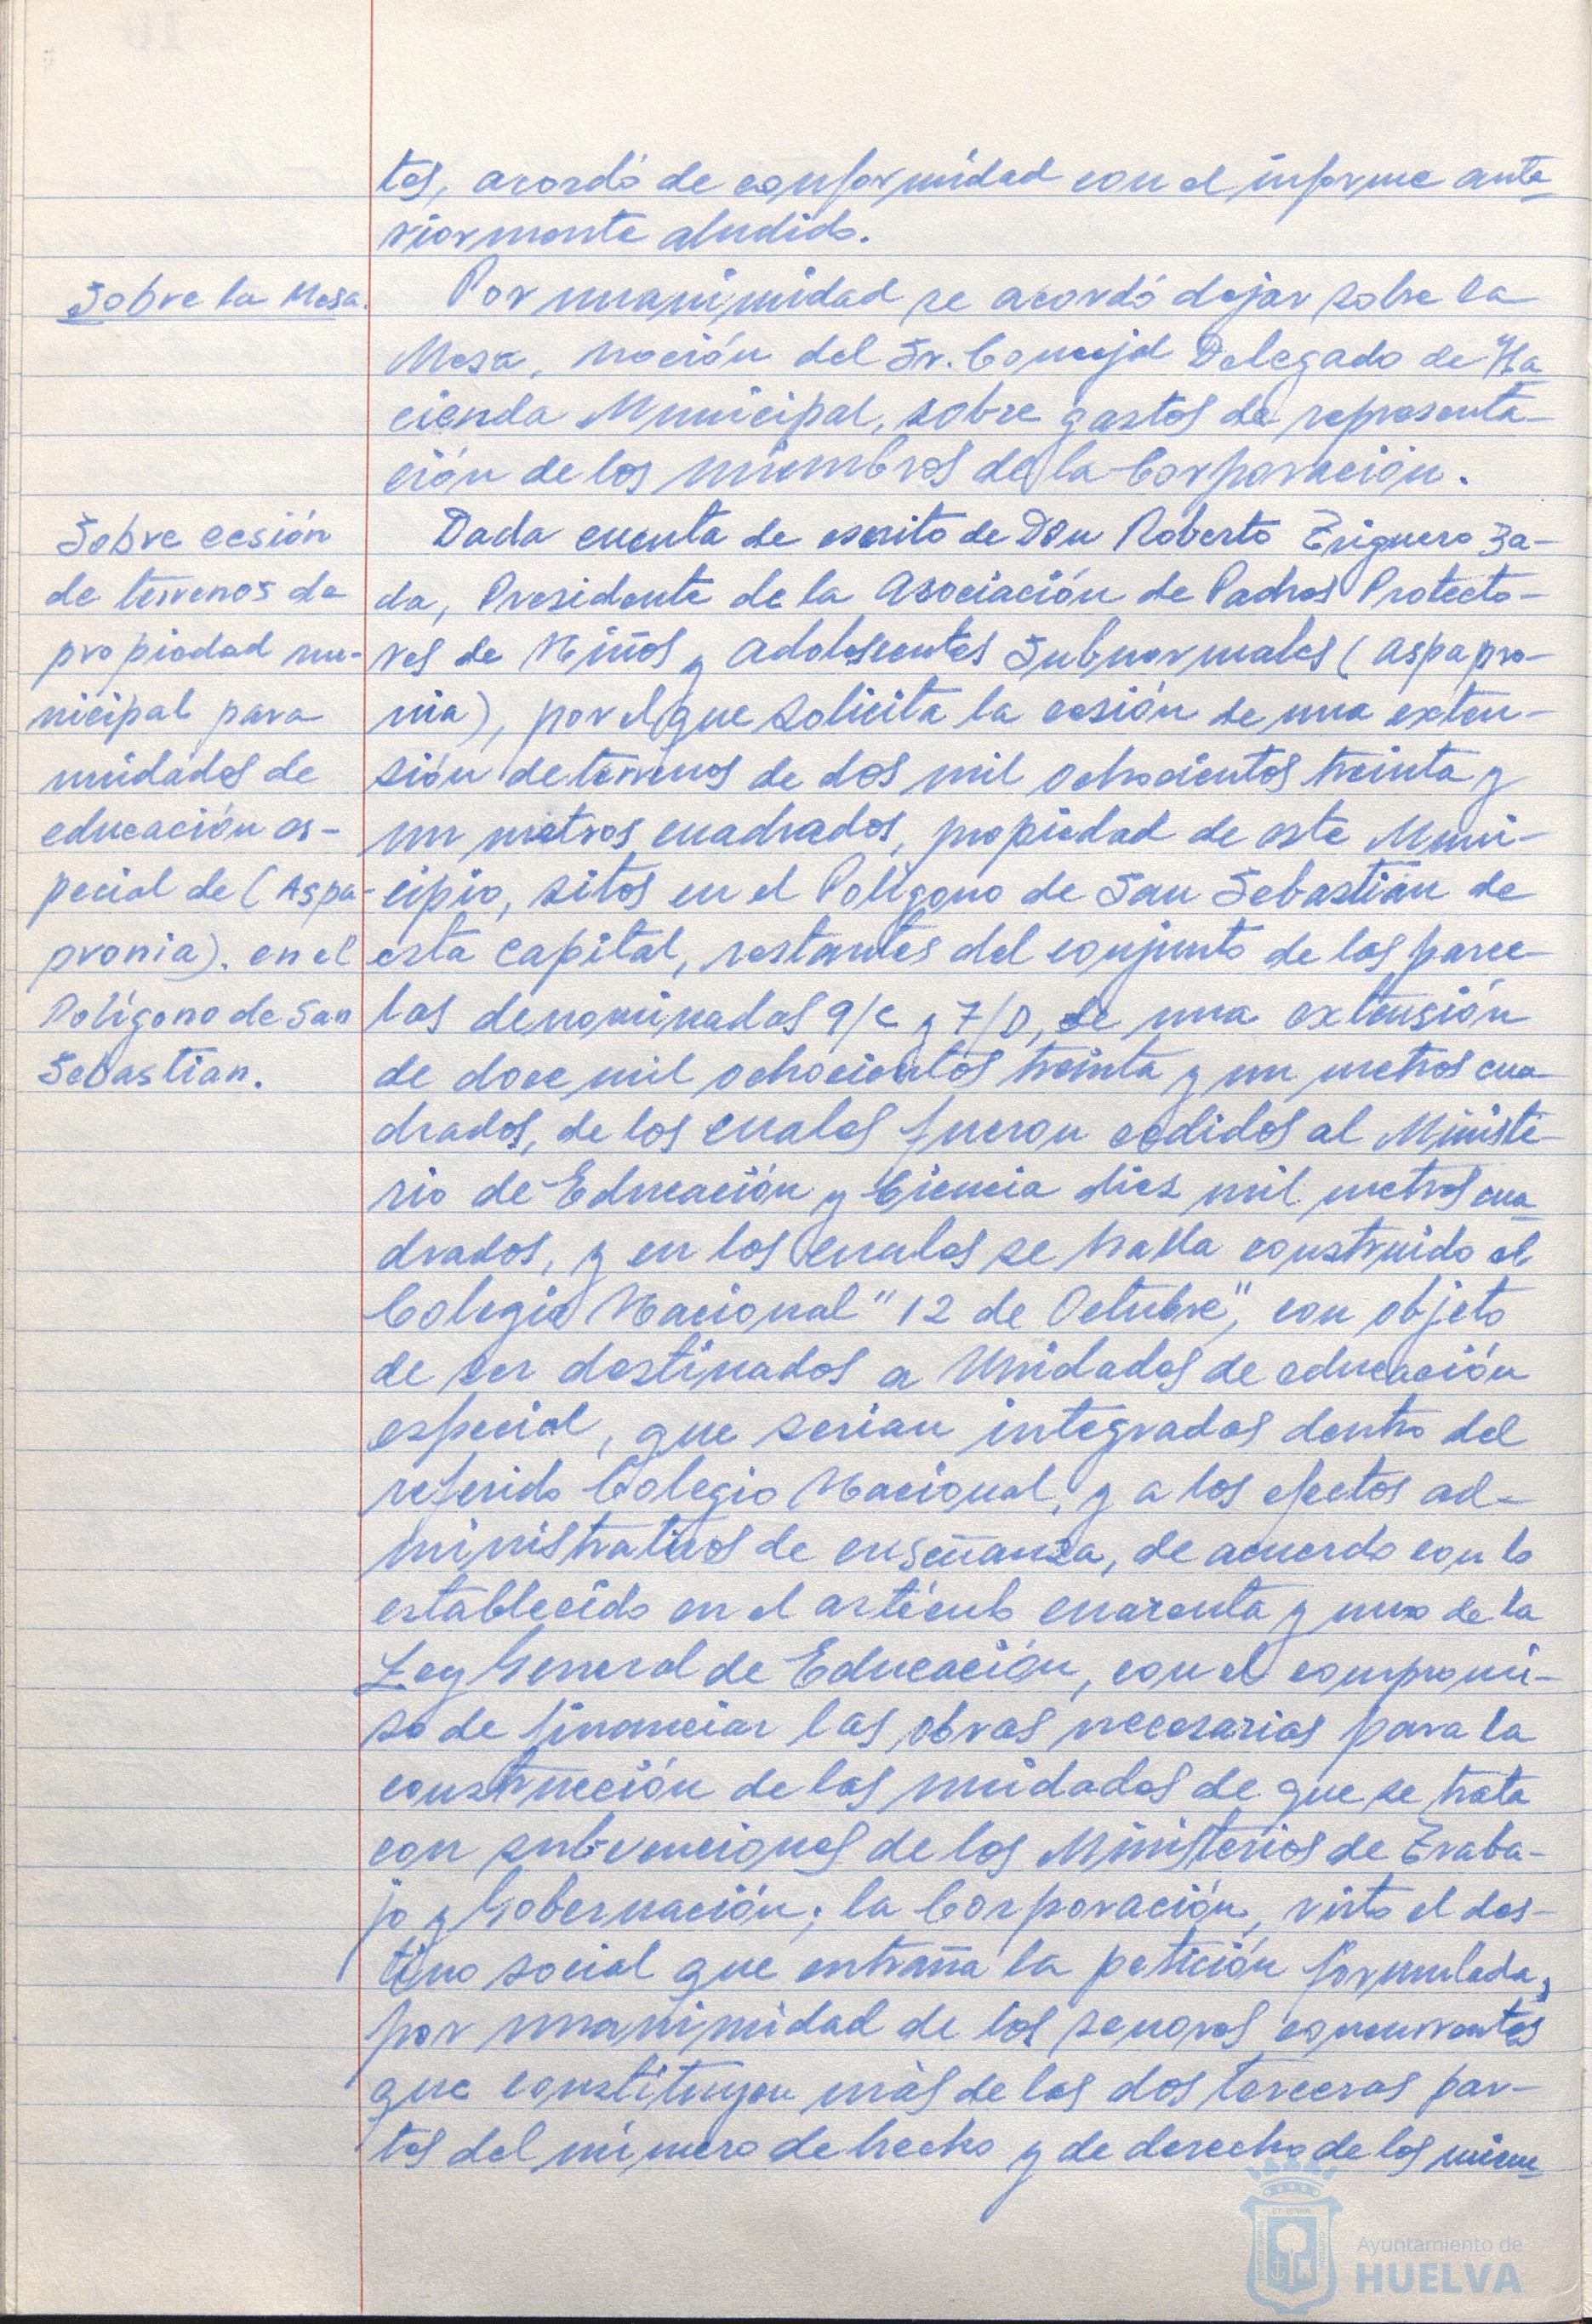 tes, acordó de conformidad con el informe ante
riormente aludido.
Sobre la Mesa.
Por unanimidad se acordó dejar sobre la
Mesa, moción del Sr. Concejal Delegado de Ha
cienda Municipal, sobre gastos de representa-
ción de los miembros de la Corporación.
Sobre cesión
de terrenos de
propiedad mu-
nicipal para
unidades de
educación es-
pecial de (Aspa-
pronia). en el
Polígono de San
Sebastian.
Dada cuenta de escrito de Don Roberto Triguero Za-
da, Presidente de la Asociación de Padres Protecto-
res de Niños y Adolescentes Subnormales (Aspapro-
nia), por el que solicita la cesión de una exten-
sión de terrenos de dos mil ochocientos treinta y
un metros cuadrados, propiedad de este Muni-
cipio, sitos en el Polígono de San Sebastián de
esta capital, restantes del conjunto de las parce-
las denominadas 9/C y 7/D, de una extensión
de doce mil ochocientos treinta y un metros cua-
drados, de los cuales fueron cedidos al Ministe-
rio de Educación y Ciencia diez mil metros cua
drados, y en los cuales se halla construido el
Colegio Nacional "12 de Octubre", con objeto
de ser destinados a Unidades de educación
especial, que serian integradas dentro del
referido Colegio Nacional, y a los efectos ad-
ministrativos de enseñanza, de acuerdo con lo
establecido en el artículo cuarenta y uno de la
Ley General de Educación, con el compromi-
so de financiar las obras necesarias para la
construcción de las unidades de que se trata
con subvenciones de los Ministerios de Traba-
jo y Gobernación; la Corporación, visto el des-
tino social que entraña la petición formulada,
por unanimidad de los señores concurrentes
que constituyen más de las dos terceras par-
tes del número de hecho y de derecho de los miem
Ayuntamiento de
HUELVA